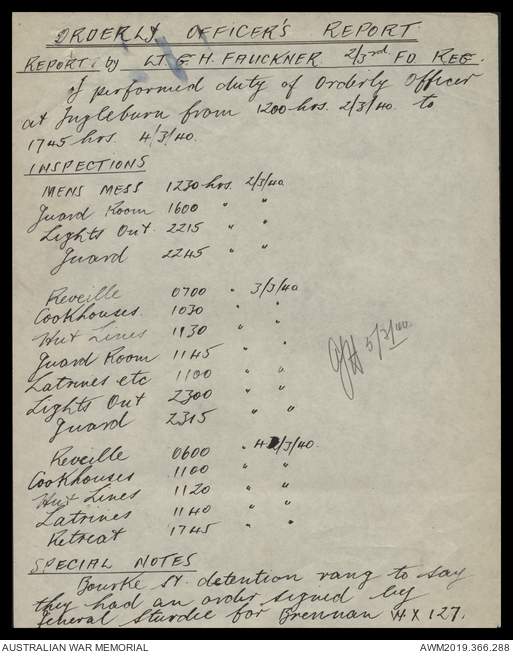 ORDERLY OFFICER'S REPORT.
REPORT: by LT. G. H. FAUCKNER. 2/3rd FD. REG.
I performed duty of Orderly Officer
at Ingleburn from 1200 hrs. 2/3/40. to
1745 hrs. 4/3/40.
INSPECTIONS
MENS MESS 1230 hrs. 2/3/40.
Guard Room 1600 " "
Lights Out. 2215 " "
Guard 2245 " "
Reveille 0700 " 3/3/40
Cookhouses. 1030 " "
Hut Lines 1130 " "
Guard Room 1145 " "
Latrines etc 1100 " "
Lights Out 2300 " "
Guard 2315 " "
Reveille 0600 " 4/3/40.
Cookhouses 1100 " "
Hut Lines 1120 " "
Latrines 1140 " "
Retreat 1745 " "
5/3/40.
SPECIAL NOTES
Bourke St. detention rang to say
they had an order signed by
General Sturdee for Brennan VX 127.
AUSTRALIAN WAR MEMORIAL AWM2019.366.288